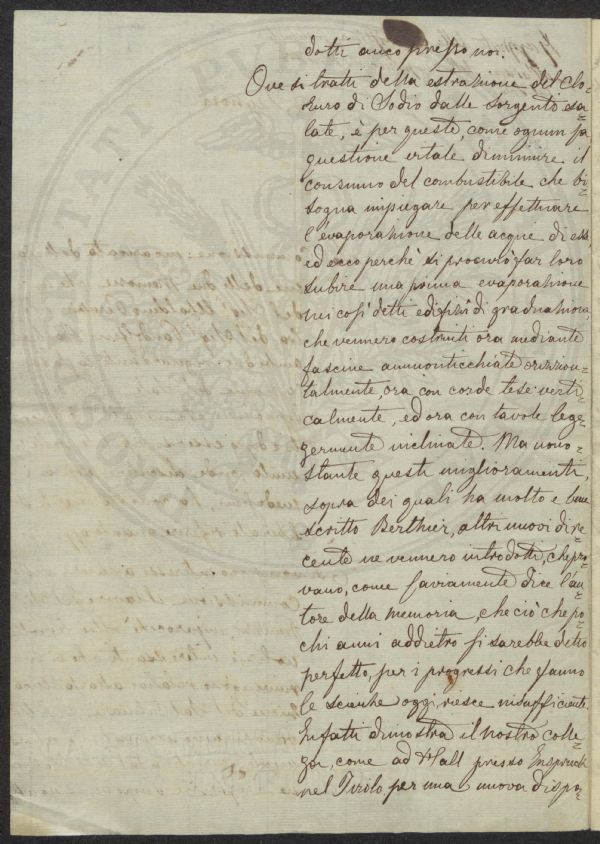 dotti anco presso noi.
Ove si tratti della estrazione del Clo-
ruro di Sodio dalle sorgenti sa-
late, è per queste, come ognun sa
questione vitale diminuire il
consumo del combustibile che bi-
sogna impiegare per effettuare
l'evaporazione delle acque di esse,
ed ecco perchè si procurò far loro
subire una prima evaporazione
nei così detti edifizi di graduazione,
che vennero costruiti ora mediante
fascine ammonticchiate orizzon-
talmente, ora con corde tese verti-
calmente, ed ora con tavole leg-
germente inclinate. Ma nono-
stante questi miglioramenti,
sopra dei quali ha molto e bene
scritto Berthier, altri nuovi di re-
cente ne vennero introdotti, che pro-
vano, come saviamente dice l'au-
tore della memoria, che ciò che po-
chi anni addietro si sarebbe detto
perfetto, per i progressi che fanno
le scienze oggi riesce insufficiente.
Infatti dimostra il nostro colle-
ga, come ad Hall presso Inspruck
nel Tirolo per una nuova dispo-